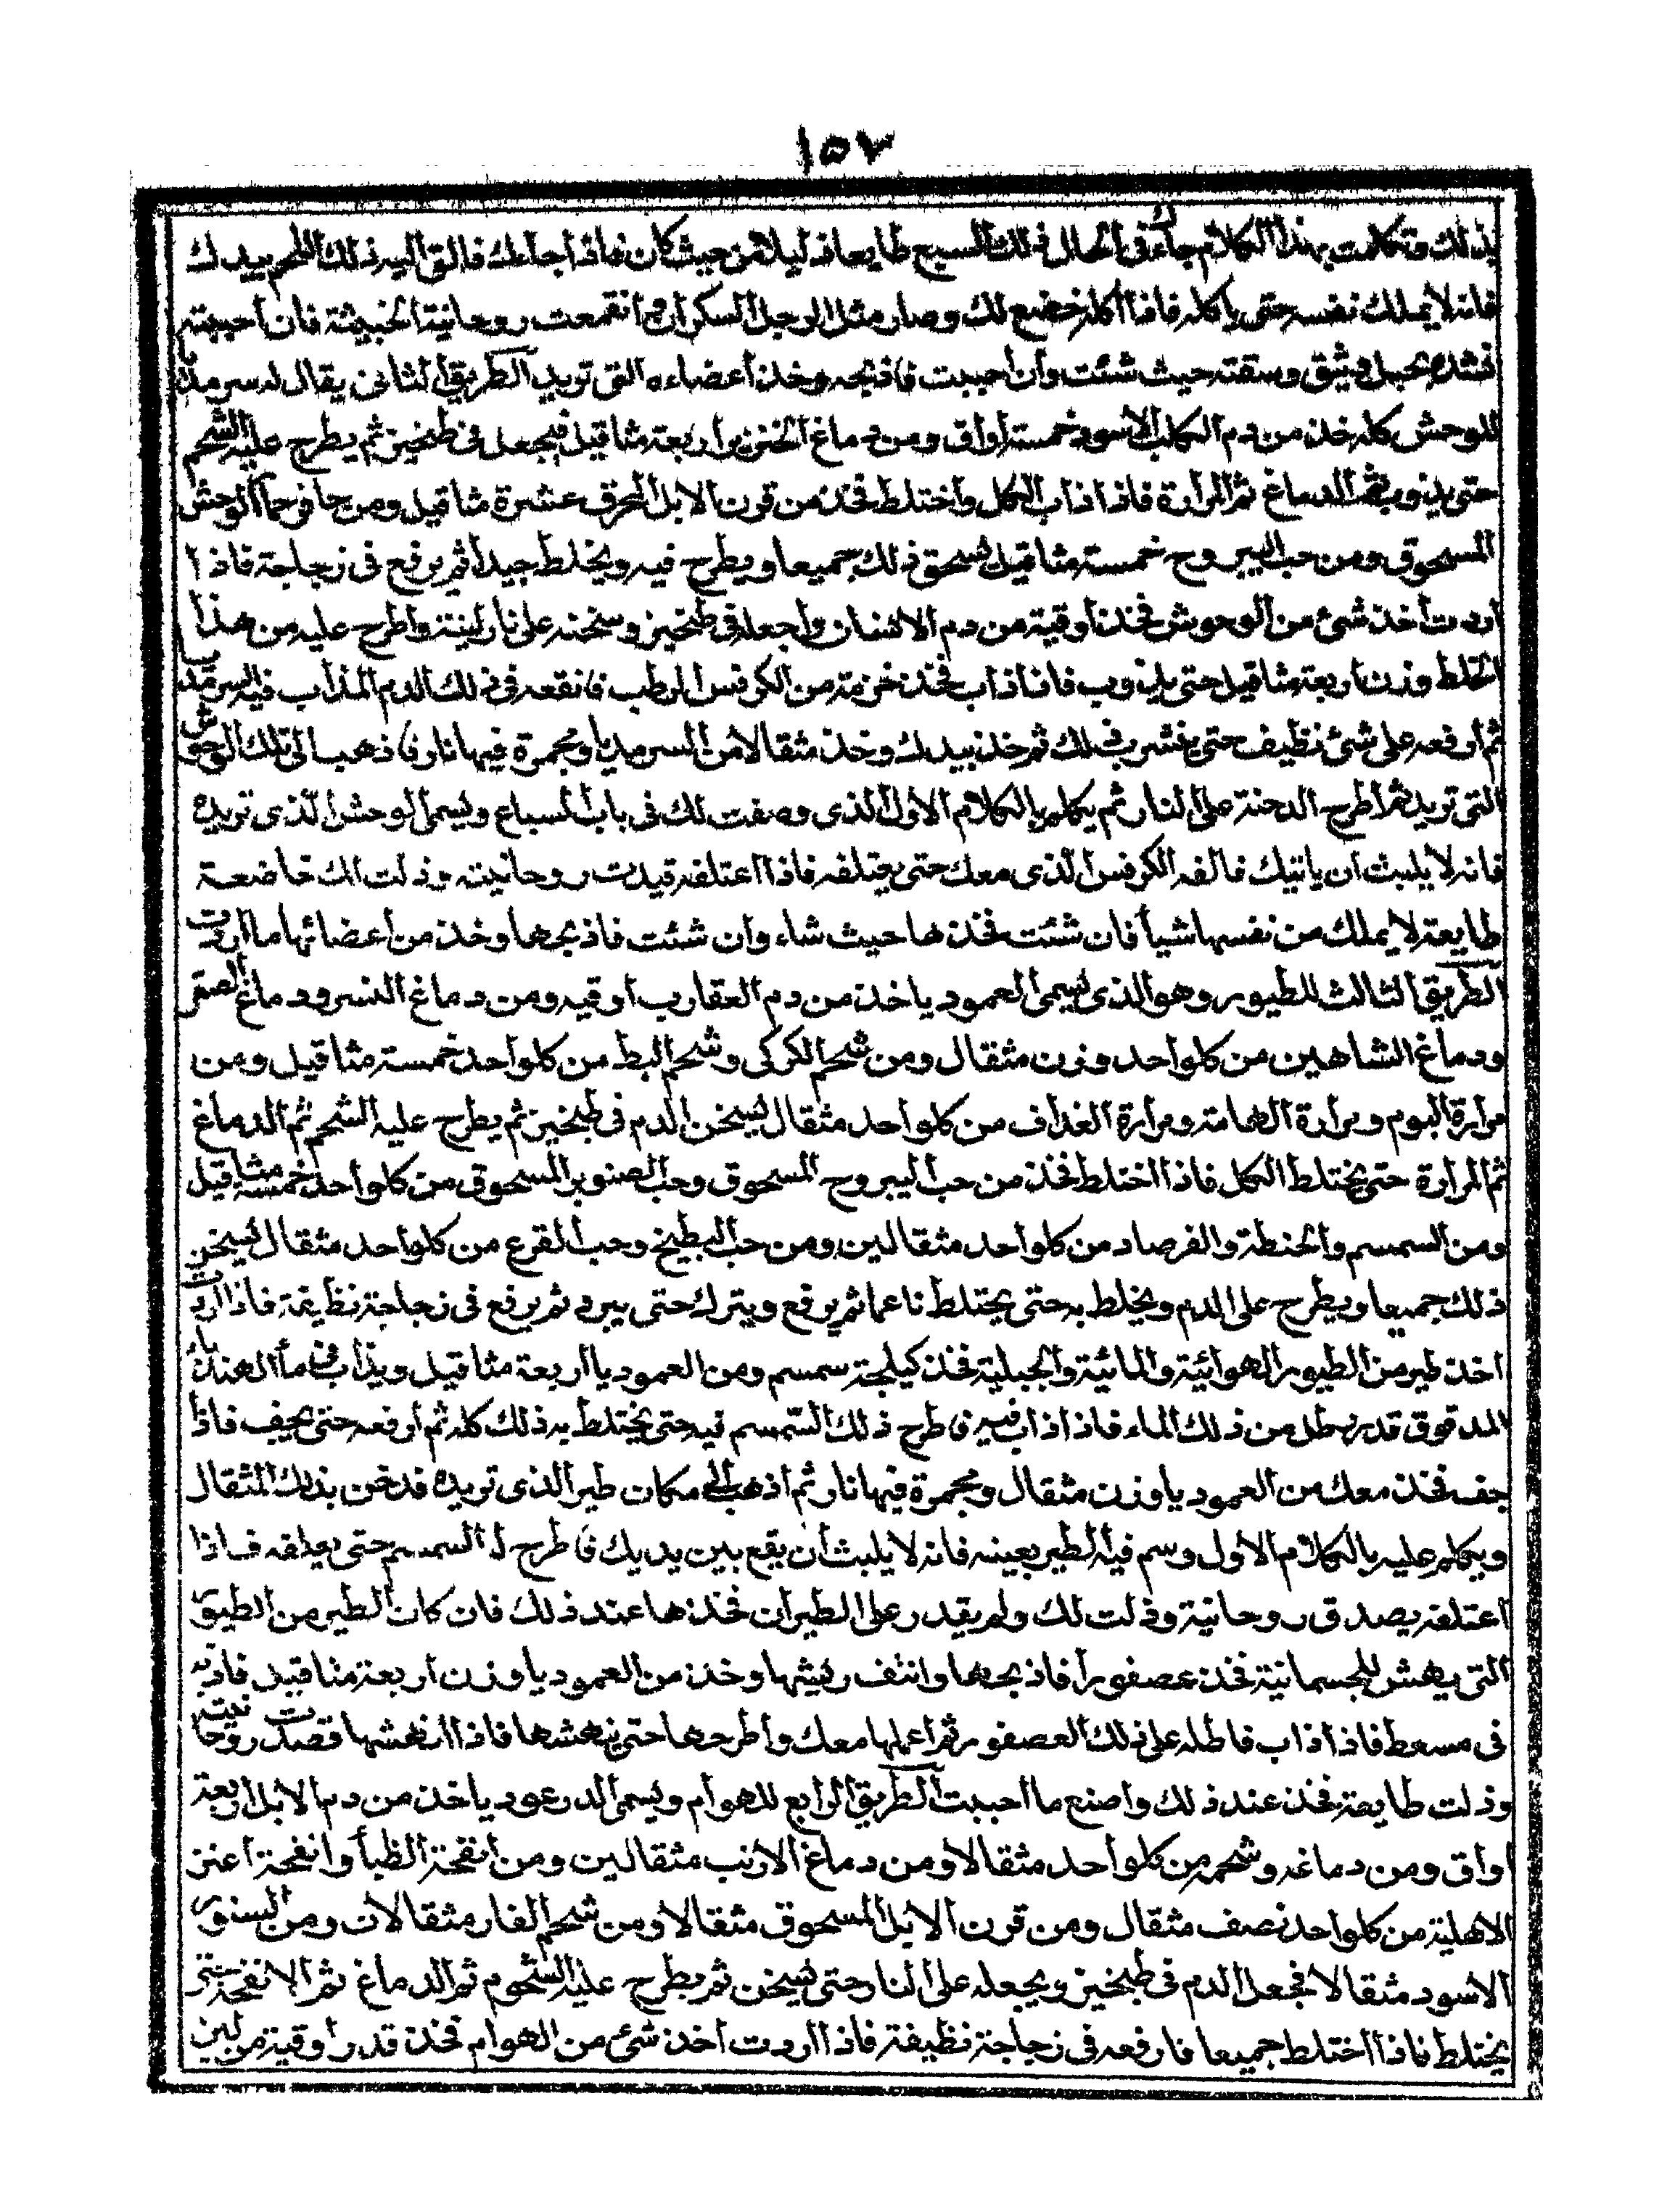 ١٥٧
بذلك وتكلمت بهذا الكلام جاءك فى الحال ذلك السبع طايعا ذليلا من حيث كان فاذا جاءك فالق اليه ذلك اللحم بيدك
فانه لا يملك نفسه حتى ياكله فاذا اكله خضع لك وصار مثل الرجل السكران وانقمعت روحانية الخبيثة فان احببته
فشده بحبل وثيق وسقته حيث شئت وان احببت فاذبحه وخذ اعضاءه التى تريد الطريق الثانى يقال له سرمديا
للوحش كله خذ من دم الكلب الاسود خمسة اواق ومن دماغ الخنزير اربعة مثاقيل فيجعل فى طنجير ثم يطرح عليه الشحم
حتى يذوب ثم الدماغ ثم المرارة فاذا ذاب الكل واختلط فخذ من قرن الابل المحرق عشرة مثاقيل ومن حافر حمار الوحش
المسحوق ومن حب اليبروح خمسة مثاقيل يسحق ذلك جميعا ويطرح فيه ويخلط جيدا ثم يرفع فى زجاجة فاذا
اردت اخذ شئ من الوحوش فخذ اوقية من دم الانسان واجعله فى طنجير وسخنه على نار لينة واطرح عليه من هذا
الخلط وزن اربعة مثاقيل حتى يذوب فاذا ذاب فخذ حزمة من الكرفس الرطب فانقعه فى ذلك الدم المذاب فيه السرمديا
ثم ارفعه على شئ نظيف حتى ينشرب ذلك ثم خذ بيدك وخذ مثقالا من السرمديا ومجمرة فيها نار فاذهب الى تلك الوحوش
التى تريد ثم اطرح الدخنة على النار ثم يكلم بالكلام الاول الذى وصفت لك فى باب السباع ويسمى الوحش الّذى تريده
فانه لا يلبث ان ياتيك فالقه الكرفس الّذى معك حتى يعتلفه فاذا اعتلفه قيدت روحانيته وذلت لك خاضعة
طايعة لا يملك من نفسها شيأ فان شئت فخذها حيث شاء وان شئت فاذبحها وخذ من اعضائها ما اردت
الطريق الثالث للطيور وهو الذى يسمى العموديا خذ من دم العقارب اوقيه ومن دماغ النسر ودماغ الصقر
ودماغ الشاهين من كلواحد وزن مثقال ومن شحم الكركى وشحم البط من كلواحد خمسة مثاقيل ومن
مرارة البوم ومرارة الهامة ومرارة الغداف من كلواحد مثقال يسخن الدم فى طنجير ثم يطرح عليه الشحم ثم الدماغ
ثم المرارة حتى يختلط الكل فاذا اختلط فخذ من حب اليبروح المسحوق وحب الصنوبر المسحوق من كلواحد خمسة مثاقيل
ومن السمسم والحنطة والفرصاد من كلواحد مثقالين ومن حب البطيخ وحب القرع من كلواحد مثقال يسخن
ذلك جميعا ويطرح على الدم ويخلط به حتى يختلط ناعما ثم يرفع ويترك حتى يبرد ثم يرفع فى زجاجة نظيفة فاذا اردت
اخذ طير من الطيور الهوائية والمائية والجبلية فخذ كيلجة سمسم ومن العموديا اربعة مثاقيل ويذاب فى ماء الهندباء
المدقوق قدر رطل من ذلك الماء فاذا ذاب فيه فاطرح ذلك السّمسم فيه حتى يختلط به ذلك كله ثم ارفعه حتى يجف فاذا
جف فخذ معك من العموديا وزن مثقال ومجمرة فيها نار ثم اذهب الى مكان طير الذى تريده فدخن بذلك المثقال
ويكلم عليه بالكلام الاول وسم فيه الطير بعينه فانه لا يلبث ان يقع بين يديك فاطرح له السمسم حتى يعلفه فاذا
اعتلفه يصدق روحانية وذلت لك ولم يقدر على الطيران فخذها عند ذلك فان كان الطير من الطيور
التى ينهش للجسمانية فخذ عصفورا فاذبحها وانتف ريشها وخذ من العموديا وزن اربعة مثاقيل فاذبه
فى مسعط فاذا ذاب فاطله على ذلك العصفور ثم اعملها معك واطرحها حتى ينهشها فاذا انهشها قصدت روحانيته
وذلت طايعة فخذ عند ذلك واصنع ما احببت الطريق الرابع للهوام ويسمى الدرعوديا خذ من دم الابل اربعة
اواق ومن دماغه وشحمه من كلواحد مثقالا ومن دماغ الارنب مثقالين ومن انفحة الظبأ وانفحة اعنز
الاهلية من كلواحد نصف مثقال ومن قرن الابل المسحوق مثقالا ومن شحم الفار مثقالان ومن السنور
الاسود مثقالا فجعل الدم فى طنجير ويجعله على النار حتى يسخن ثم يطرح عليه الشحوم ثم الدماغ ثم الانفحة حتى
يختلط فاذا اختلط جميعا فارفعه فى زجاجة نظيفة فاذا اردت اخذ شئ من الهوام فخذ قدر اوقية من لبن